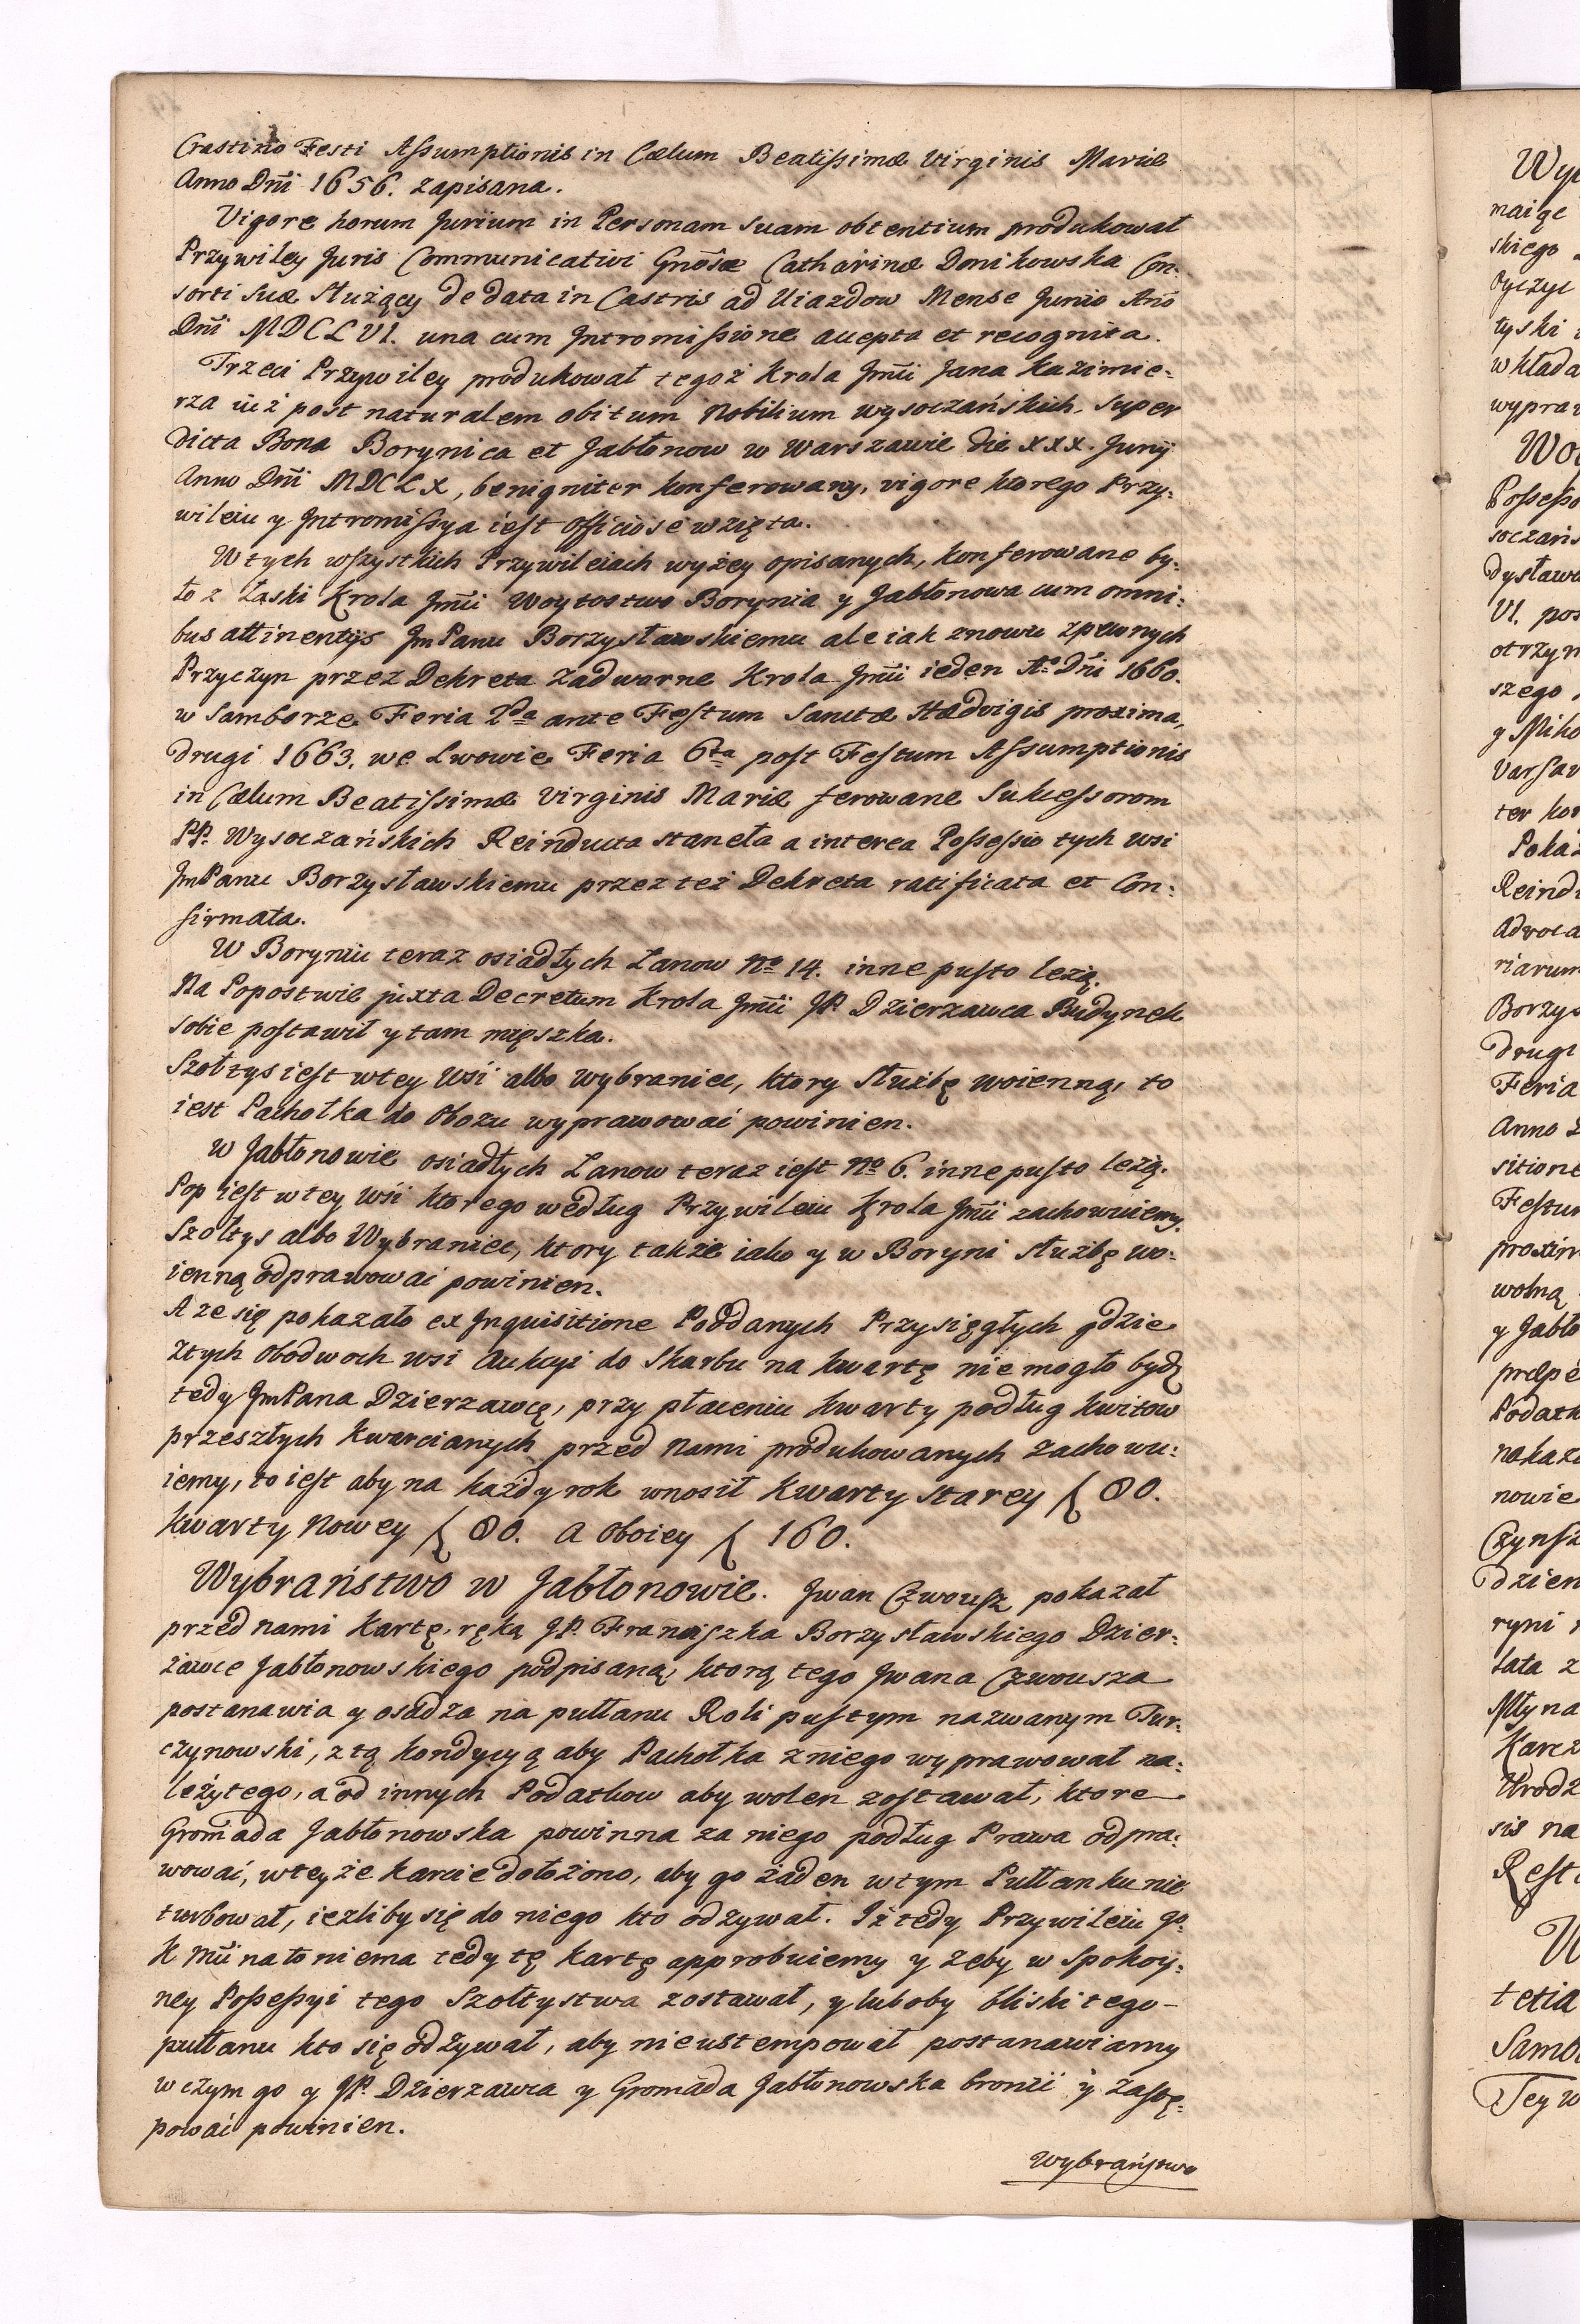 Crastino Festi Assumptionis in Cælum Beatissimæ Virginis Mariæ
Anno Dñi 1656. zapisana.
Vigore horum Jurium in Personam suam obtentium produkował
Przywiley Juris Communicativi Gnosæ Catharinæ Donikowska Con:
sorti suæ służący de data in Castris ad Uiazdow Mense Junio Año
Dñi MDCLVI. una cum Intromissione accepta et recognita.
Trzeci Przywiley produkował tegoż Krola Jmci Jana Kazimie:
rza iuż post naturalem obitum Nobilium Wysoczańskich, super
dicta Bona Borynica et Jabłonow w Warszawie die XXX. Junij
Anno Dñi MDCLX, benigniter konferowany, vigore ktorego Przy:
wileiu y Intromissya iest officiose wzięta.
W tych wszystkich Przywileiach wyżey opisanych, konferowane by:
ło z Łaski Krola Jmci Woytostwo Borynia y Jabłonowa cum omni:
bus attinentijs JmPanu Borzysławskiemu ale iak znowu z pewnych
Przyczyn przez Dekreta Zadworne Krola Jmci ieden A° Dñi 1660.
w Samborze Feria 2da ante Festum Sanctæ Hædvigis proxima,
drugi 1663. we Lwowie Feria 6ta post Festum Assumptionis
in Cælum Beatissimæ Virginis Mariæ ferowane Sukcessorom
PP. Wysoczańskich Reinducta staneła a interea Possessio tych wsi
JmPanu Borzysławskiemu przez też Dekreta ratificata et Con:
firmata.
W Boryniu teraz osiadłych Łanow No 14. inne pusto leżą.
Na Popostwie juxta Decretum Krola Jmci JP. Dzierzawca Budynek
sobie postawił y tam mięszka.
Szołtys iest w tey Wsi albo wybraniec, ktory służbę woienną, to
iest Pachołka do Obozu wyprawować powinien.
W Jabłonowie osiadłych Łanow teraz iest No 6. inne pusto leżą.
Pop iest w tey wsi ktorego według Przywileiu Krola Jmci zachowuiemy.
Szołtys albo Wybraniec, ktory także iako y w Boryni służbę wo:
ienną odprawować powinien.
A że się pokazało ex Inquisitione Poddanych Przysięgłych gdzie
z tych obodwoch wsi Aukcyi do Skarbu na kwartę nie mogło bydź
tedy JmPana Dzierzawcę, przy płaceniu kwarty podług kwitow
przeszłych kwarcianych przed nami produkowanych zachowu:
iemy, to iest aby na każdy rok wnosił Kwarty starey ƒ 80.
kwarty Nowey ƒ 80. a oboiey ƒ 160.
Wybraństwo w Jabłonowie. Jwan Czwousz pokazał
przed nami kartę, ręką JP. Franciszka Borzysławskiego Dzier:
żawce Jabłonowskiego podpisaną, ktorą tego Jwana Czwousza
postanawia y osadza na pułłanu Roli pustym nazwanym Tur:
czynowski, z tą kondycyą aby Pachołka z niego wyprawował na:
leżytego, a od innych Podatkow aby wolen zostawał, ktore
Gromada Jabłonowska powinna za niego podług Prawa odpra:
wować, w teyże karcie dołożono, aby go żaden w tym Pułłanku nie
turbował, ieżliby się do niego kto odzywał. Iż tedy Przywileiu Jo.
K Mci na to niema tedy tę kartę approbuiemy y żeby w spokoy:
ney Possessyi tego Szołtystwa zostawał, y luboby bliski tego-
pułłanu kto się odzywał, aby nie ustempował postanawiamy
w czym go y JP. Dzierzawca y Gromada Jabłonowska bronić y zastę:
pować powinien.
Wybraństwo